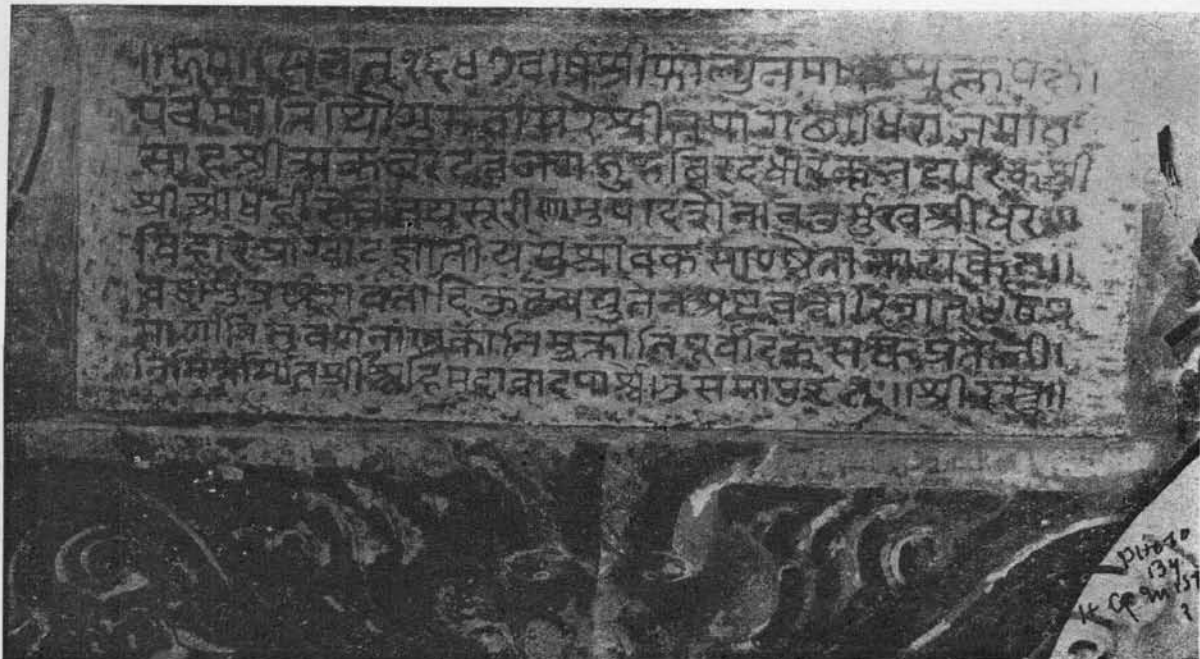 संवत् १६४७ वर्षे श्रीफाल्गुनमासे शुक्लपक्षे।
पंचम्यां तिथौ गुरुवासरे श्रीतपागच्छाधिराजपात
साहश्रीअकबरदत्तजगद्गुरुबिरुदधारकभट्टारिकश्री
श्रीश्री४हीरविजयसूरीणामुपदेशेन चतुर्मुखश्रीधरण
विहारे प्राग्वाटज्ञातीयसुश्रावक सा० खेतानायकेन॥
यशवंतादिकुटुंबयुतेन अष्टचत्वारिंशत् ४८ प्र
माणानि सुवर्णनाणकानि मुक्तानि पूर्वदिक्सत्कप्रतोली।
निमित्तमिति श्रीअहिमदावादपार्श्वे। उसमापुरतः॥ श्रीरस्तु॥